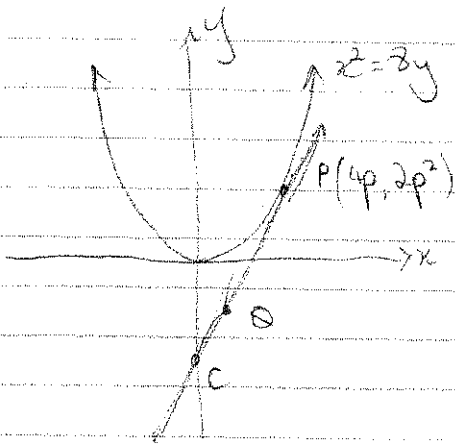 y
x² = 8y
P(4p, 2p²)
x
Q
C